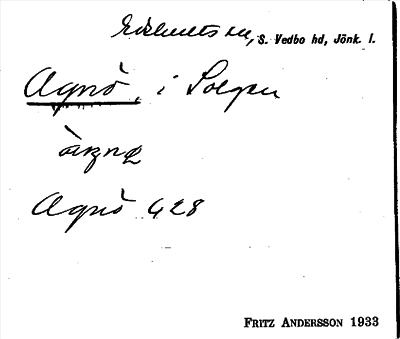 Edshults sn, S. Vedbo hd, Jönk. l.
Agnö, i Solgen
Agnö G 28
FRITZ ANDERSSON 1933